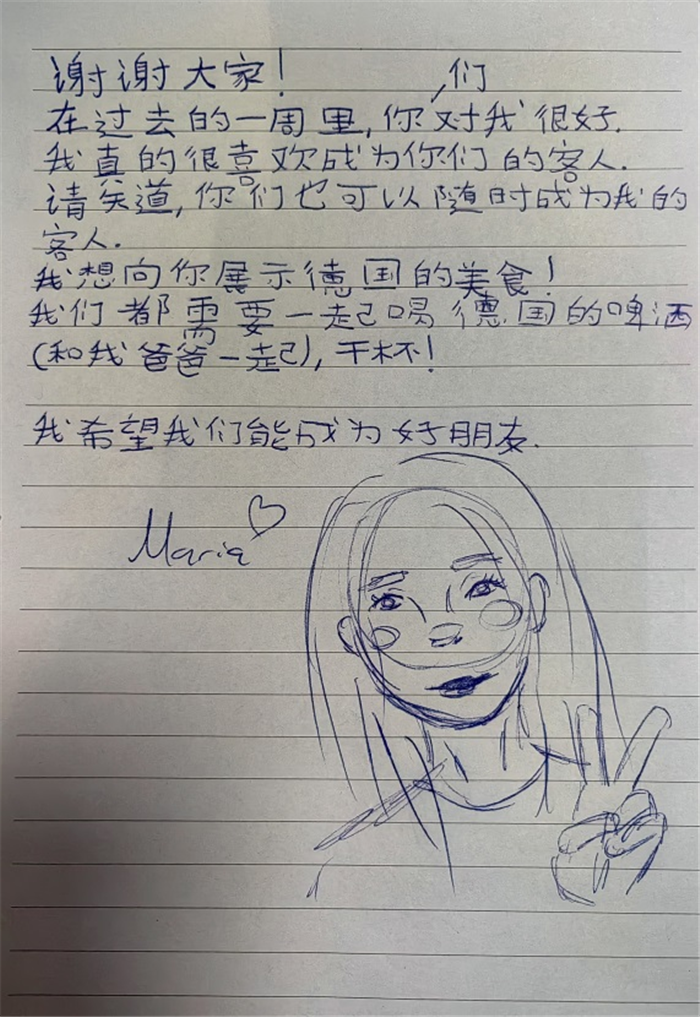 谢谢大家！
在过去的一周里，你们对我很好.
我真的很喜欢成为你们的客人.
请知道，你们也可以随时成为我的
客人.
我想向你展示德国的美食！
我们都需要一起喝德国的啤酒
(和我爸爸一起)，干杯！
我希望我们能成为好朋友.
Maria